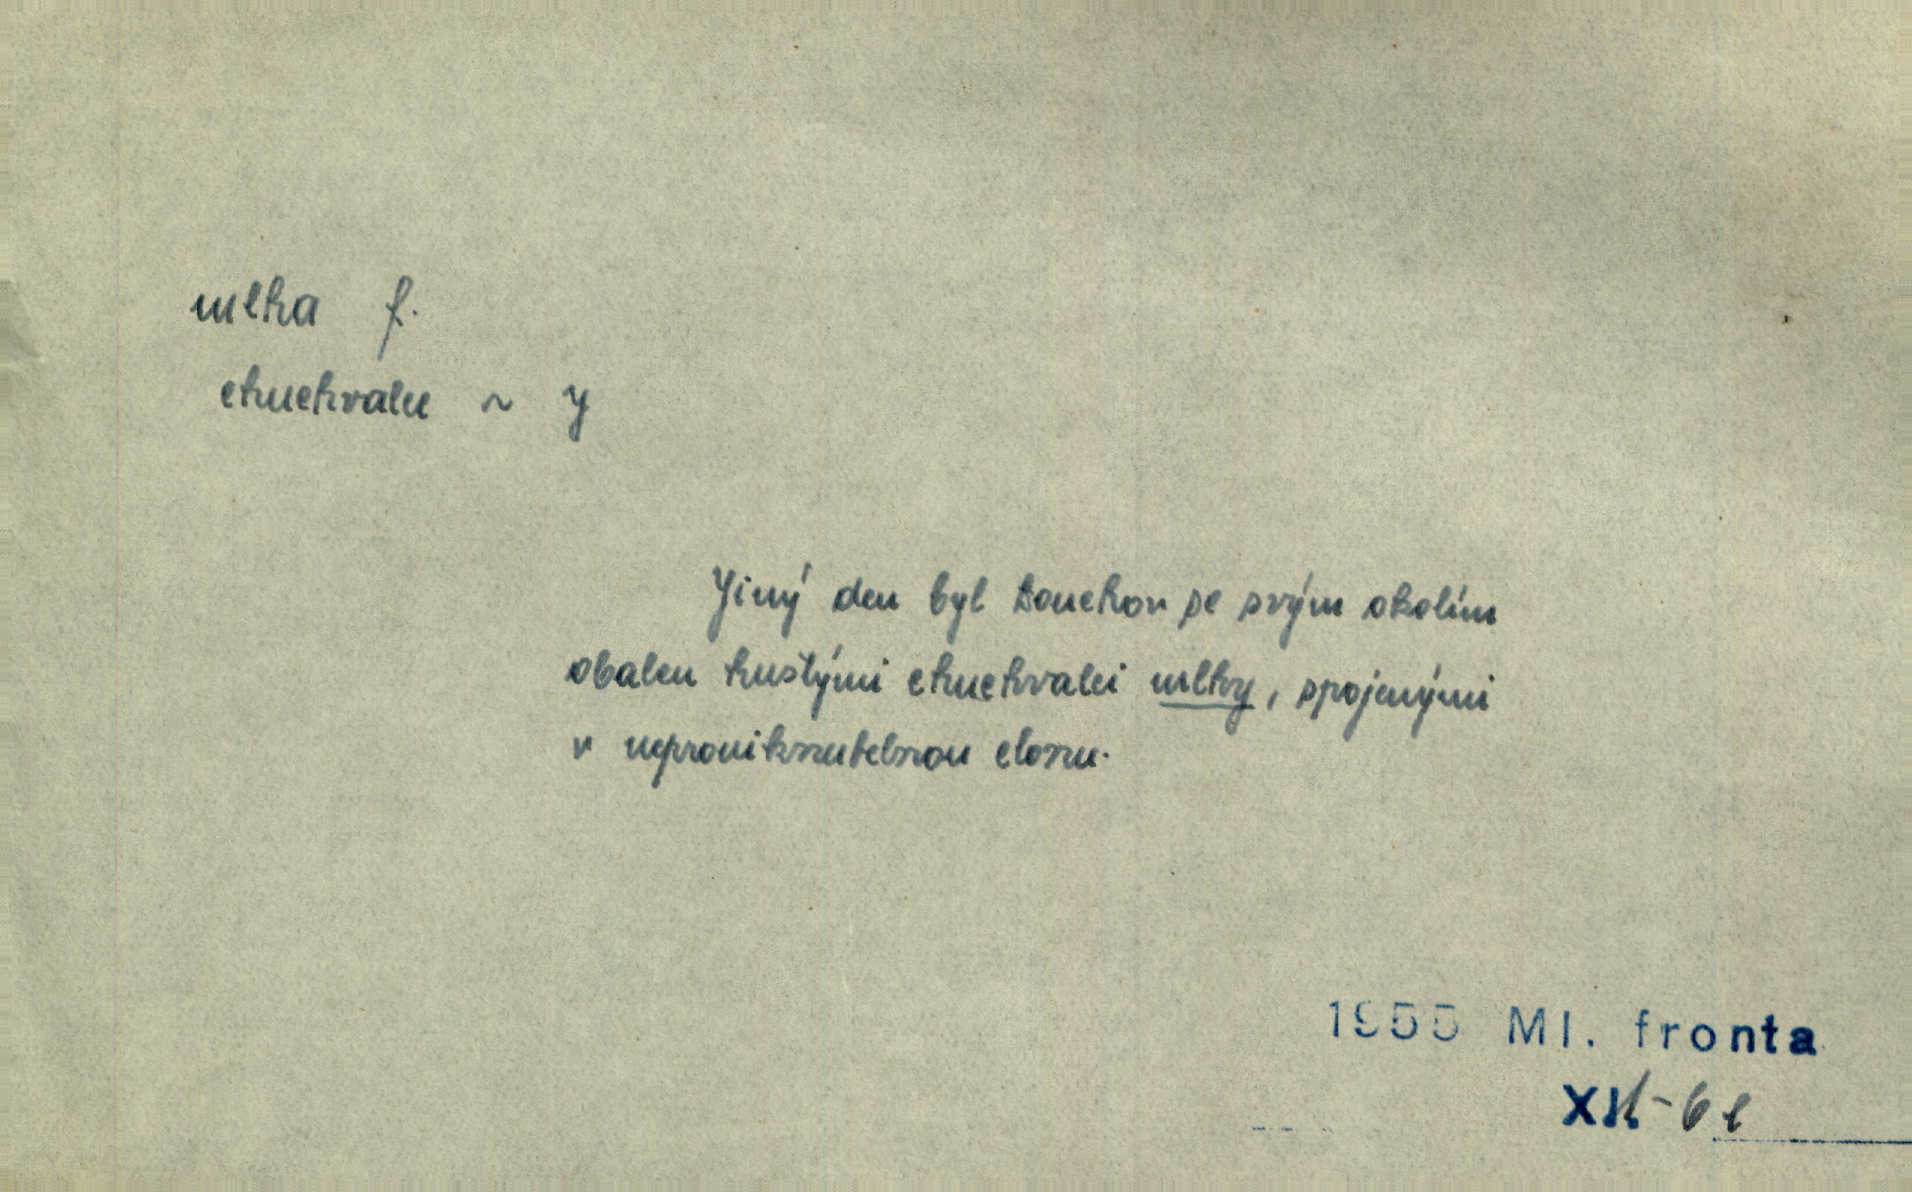 mlha f.
chuchvalec ~ y
Jiný den byl Souchov se svým okolím
obalen hustými chuchvalci mlhy, spojenými
v neproniknutelnou clonu.
1955 Ml. fronta